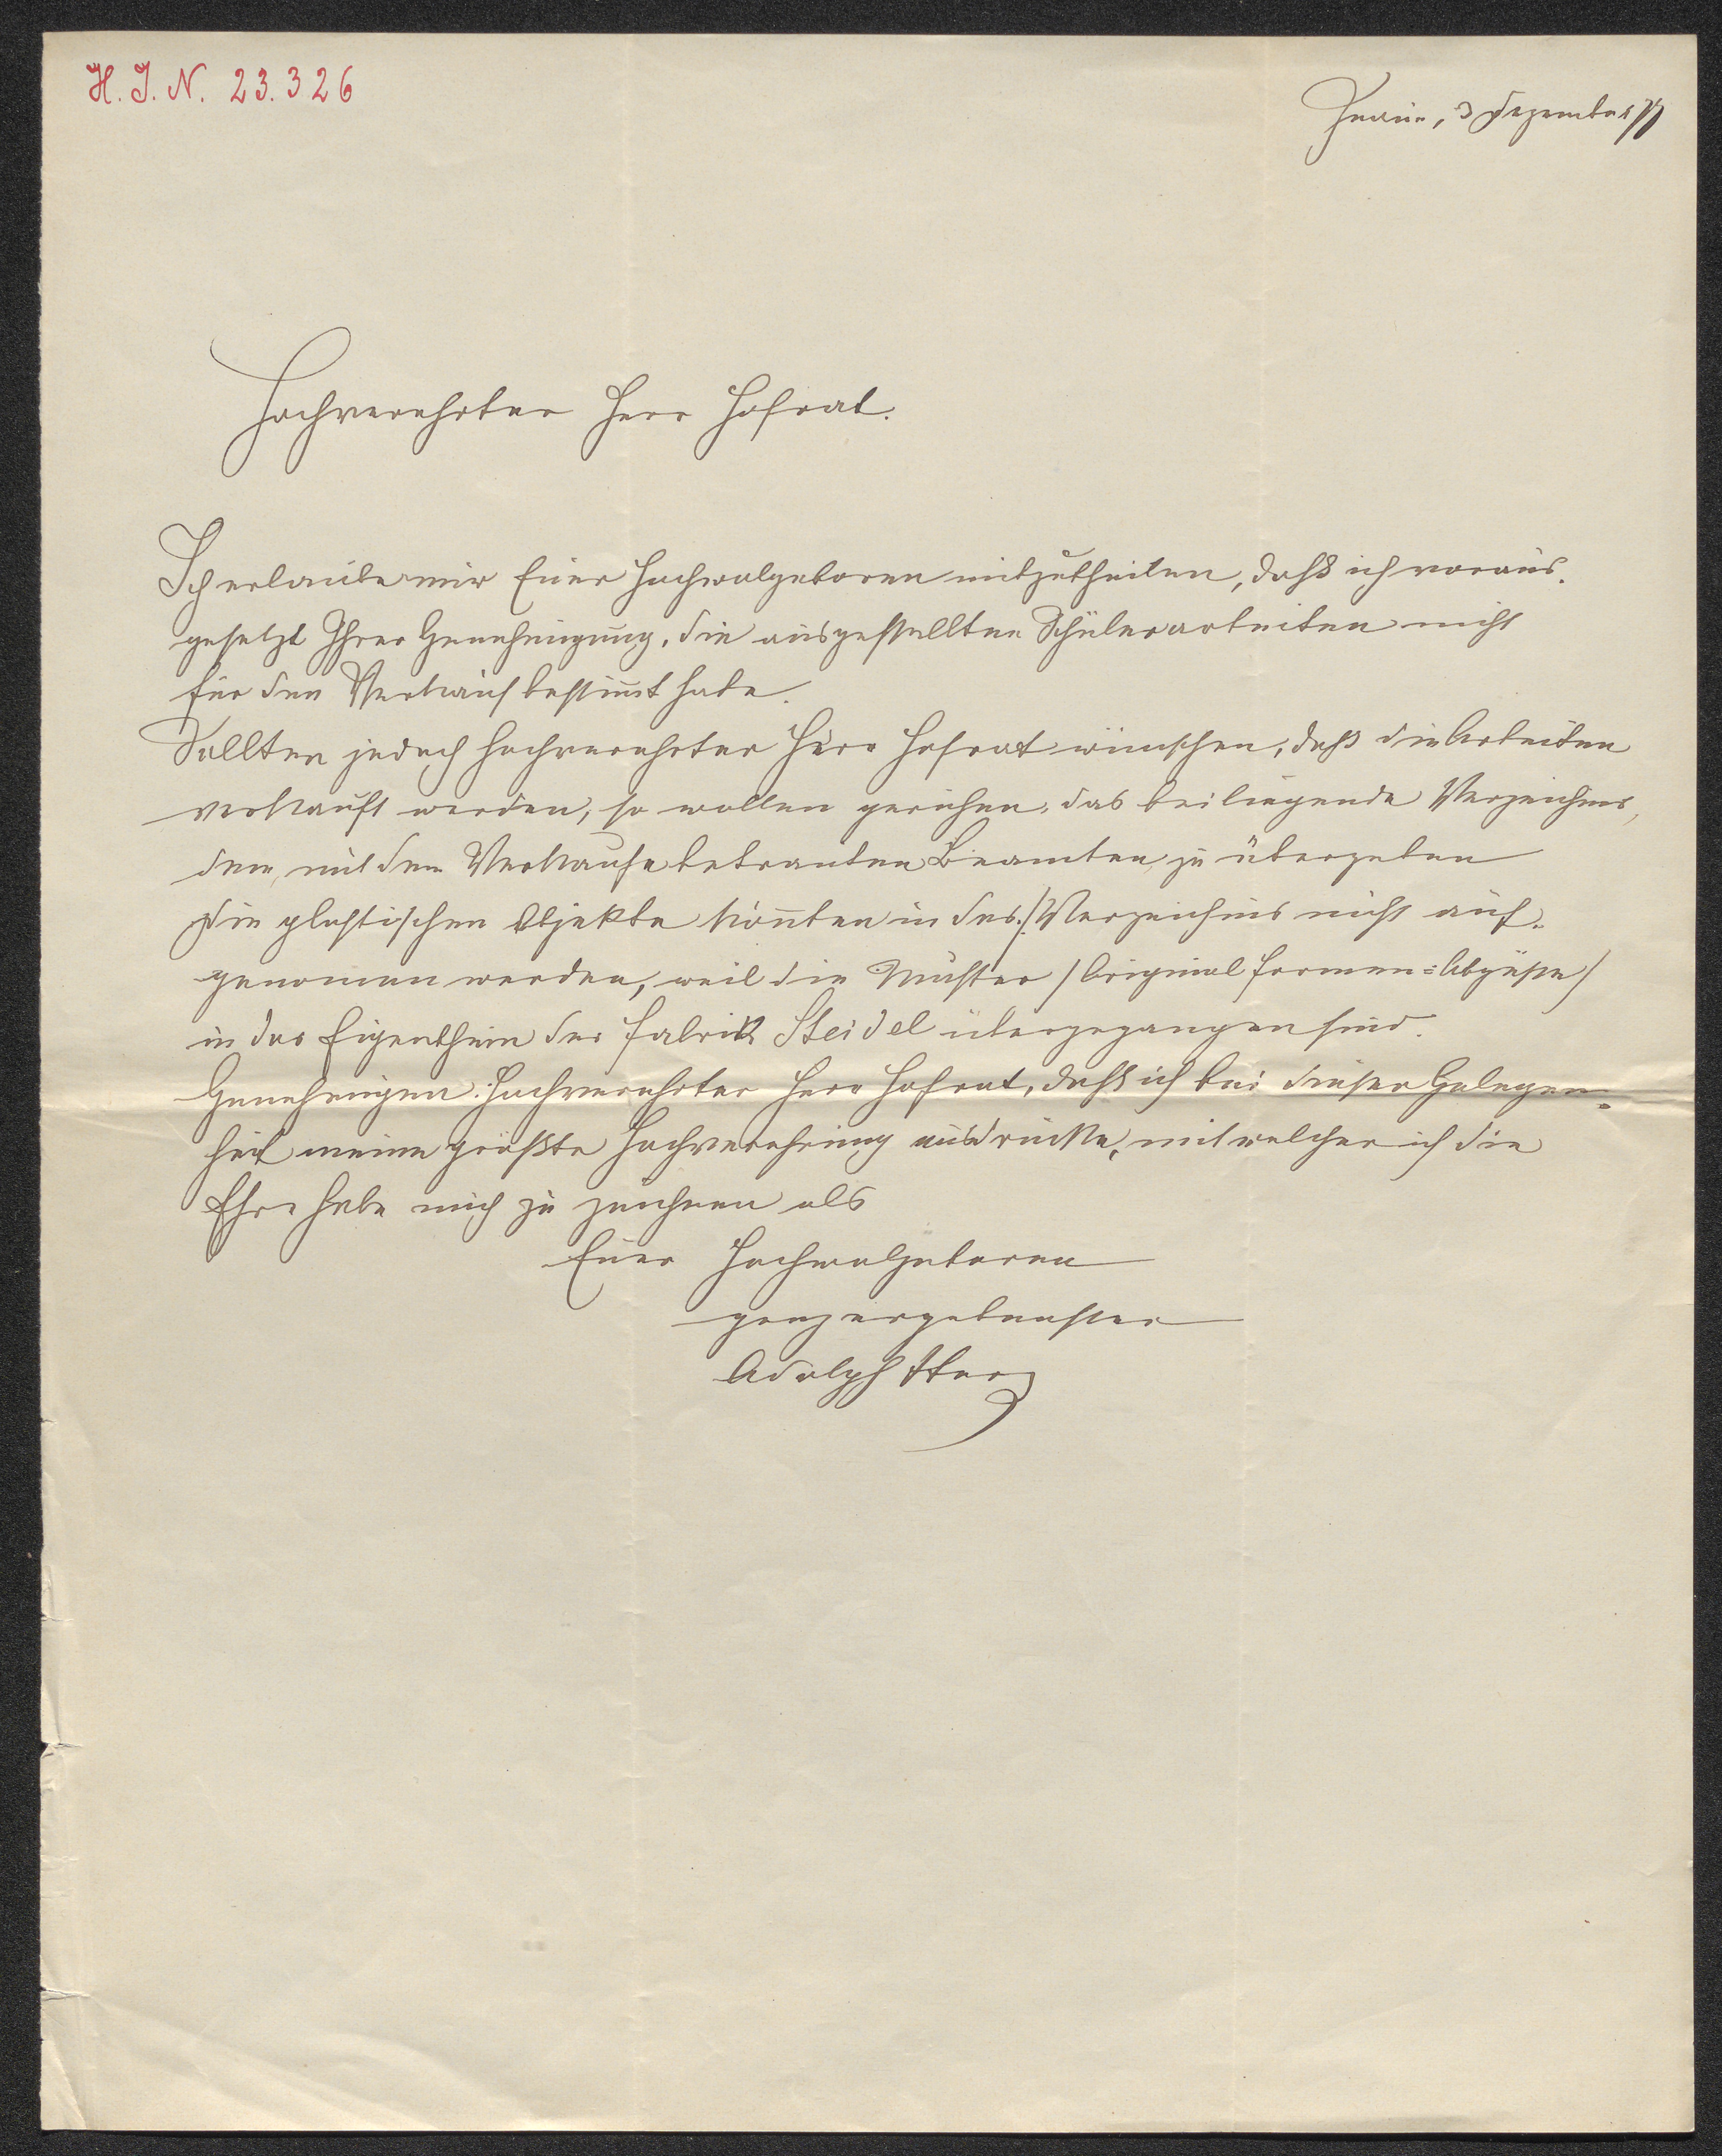 H. I. N. 23.326
Znaim, 3 Dezember 77
Hochverehrter Herr Hofrat.
Ich erlaube mir Euer Hochwolgeboren mitzutheilen, daß ich voraus-
gesetzt Ihrer Genehmigung, die ausgestellten Schülerarbeiten nicht
für den Verkauf bestimt habe.
Sollten jedoch hochverehrter Herr Hofrat wünschen, daß die Arbeiten
verkauft werden, so wollen geruhen, das beiliegende Verzeichnis,
dem, mit dem Verkaufe betrauten Beamten zu übergeben
Die plastischen Objekte konnten in das Verzeichnis nicht auf-
genomen werden, weil die Muster /Original Formen=Abgüße/
in das Eigenthum der Fabrik Steidel übergegangen sind.
Genehmigen hochverehrter Herr Hofrat, daß ich bei dieser Gelegen-
heit meine größte Hochverehrung ausdrücke, mit welcher ich die
Ehre habe mich zu zeichnen als
Euer Hochwolgeboren
ganz ergebenster
Adolph Sterz